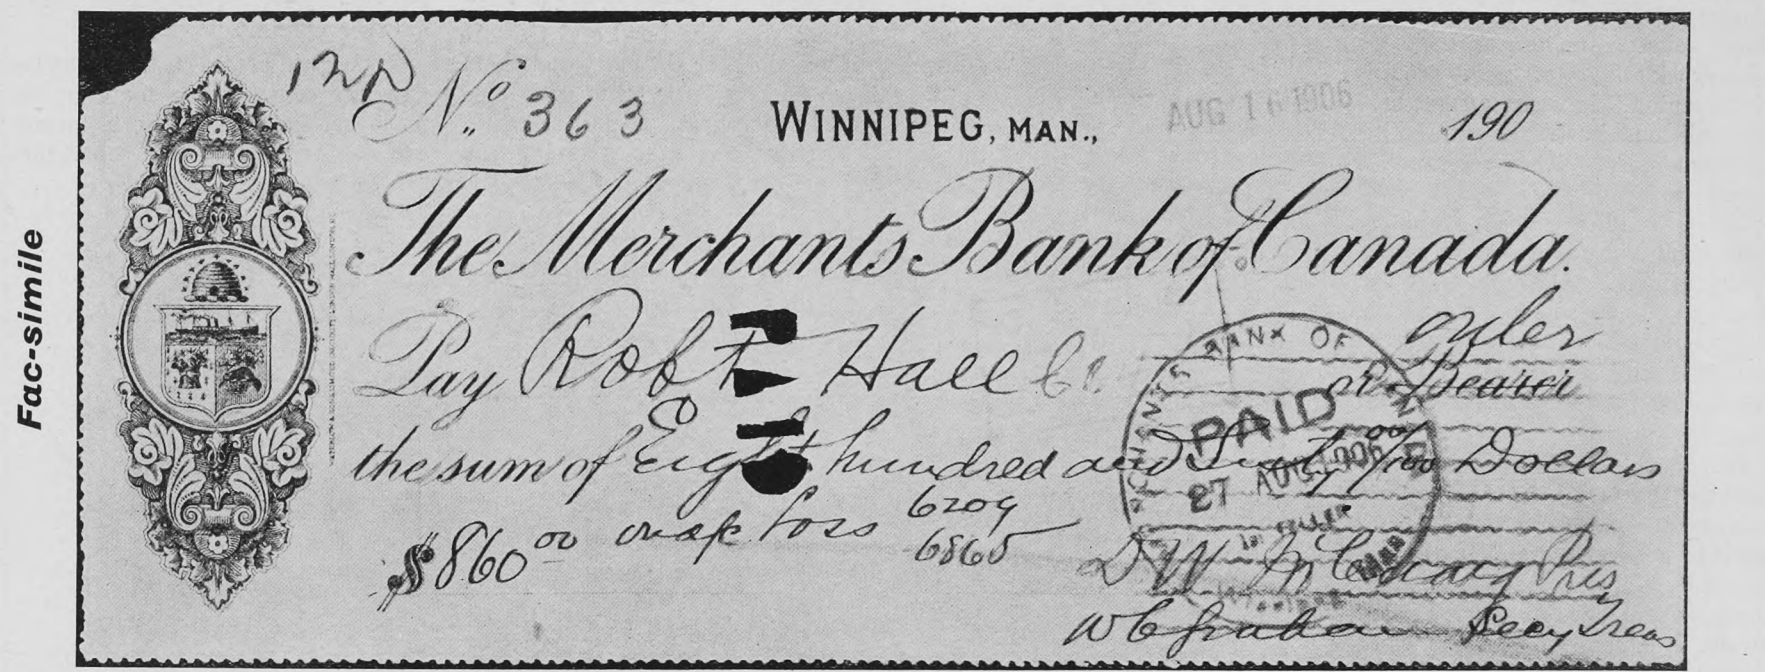 Fac-simile
No. 363
WINNIPEG, MAN., AUG 16 1906 190
The Merchants Bank of Canada.
Pay Robt Hall Co. order
or Bearer
the sum of Eight hundred and Sixty 00/100 Dollars
$860 00 loss 6209
6865
BANK OF
PAID
27 AUG 1906
D W McCuaig Pres
W C Graham Secy Treas